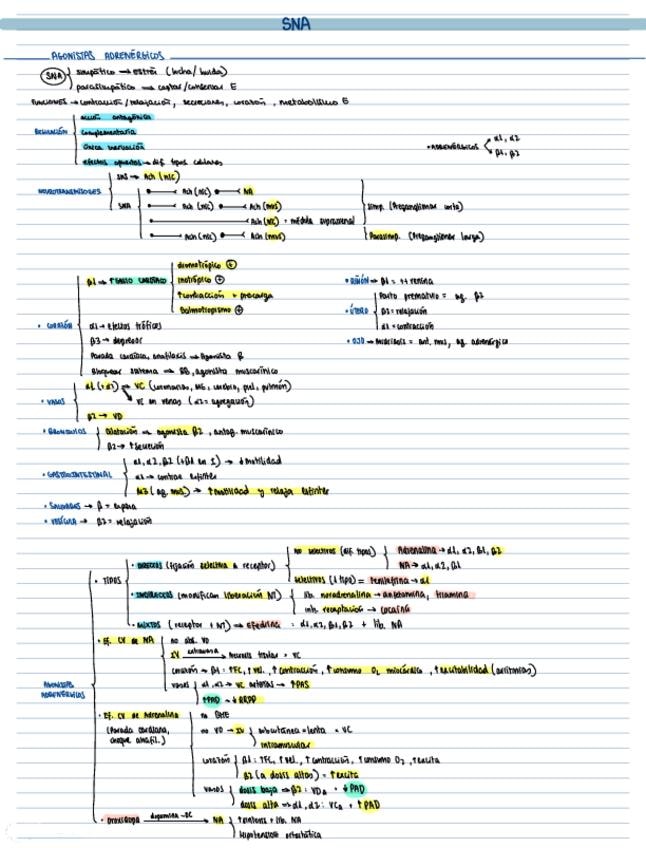 SNA
AGONISTAS ADRENÉRGICOS
SNA
simpático → estrés (lucha/huida)
parasimpático → captar/conservar E
FUNCIONES → contracción/relajación, secreciones, corazón, metabolismo E
REGULACIÓN
acción antagónica
complementaria
única inervación
efectos opuestos → dif. tipos celulares
• ADRENÉRGICOS
α1, α2
β1, β2
NEUROTRANSMISORES
SNS → Ach (nic)
SNA
Ach (nic) NA
Ach (nic) Ach (mus)
Ach (nic) = médula suprarrenal
Ach (nic) Ach (mus)
Simp. (Preganglionar corta)
Parasimp. (Preganglionar larga)
• CORAZÓN
β1 → ↑ GASTO CARDÍACO
dromotrópico ⊕
inotrópico ⊕
↑ contracción + precarga
batmotropismo ⊕
α1 → efectos tróficos
β3 → depresor
Parada cardíaca, anafilaxis → Agonista β
Bloquear sistema → BB, agonista muscarínico
• RIÑÓN → β1 = ++ renina
• ÚTERO
Parto prematuro = ag. β2
β2 = relajación
α1 = contracción
• OJO → Midriasis = ant. mus, ag. adrenérgico
• VASOS
α1 (+α2) → VC (coronarias, ME, cerebro, piel, pulmón)
VC en venas (α2 = agregación)
β2 → VD
• BRONQUIOS
Dilatación → agonista β2, antag. muscarínico
β2 → ↑ secreción
• GASTROINTESTINAL
α1, α2, β2 (+β1 en I) → ↓ motilidad
α1 → contrae esfínter
M3 (ag. mus) → ↑ motilidad y relaja esfínter
• SALIVARES → β = espesa
• VESÍCULA → β2 = relajación
AGONISTAS ADRENÉRGICOS
• TIPOS
• DIRECTOS (fijación selectiva a receptor)
no selectivos (dif. tipos)
Adrenalina → α1, α2, β1, β2
NA → α1, α2, β1
selectivos (1 tipo) = Fenilefrina → α1
• INDIRECTOS (modifican liberación NT)
lib. noradrenalina → anfetamina, tiramina
inh. recaptación → cocaína
• MIXTOS (receptor + NT) → Efedrina : α1, α2, β1, β2 + lib. NA
• Ef. CV de NA
no abs. VO
IV → necrosis tisular = VC
corazón → β1: ↑FC, ↑vel., ↑ contracción, ↑ consumo O2 miocárdico, ↑ excitabilidad (arritmias)
vasos
α1, α2 → VC arterias → ↑ PAS
↑PAD → ↓
• Ef. CV de Adrenalina
(Parada cardíaca, choque anafil.)
no BHE
no VO → IV
subcutánea = lenta = VC
intramuscular
corazón
β1: ↑FC, ↑vel., ↑ contracción, ↑ consumo O2, ↑ excita
β2 (a dosis altas) = ↑ excita
vasos
dosis baja → β2: VDa = ↓ PAD
dosis alta → α1, α2: VCa = ↑ PAD
• Droxidopa → NA
↑ síntesis + lib. NA
Hipotensión ortostática